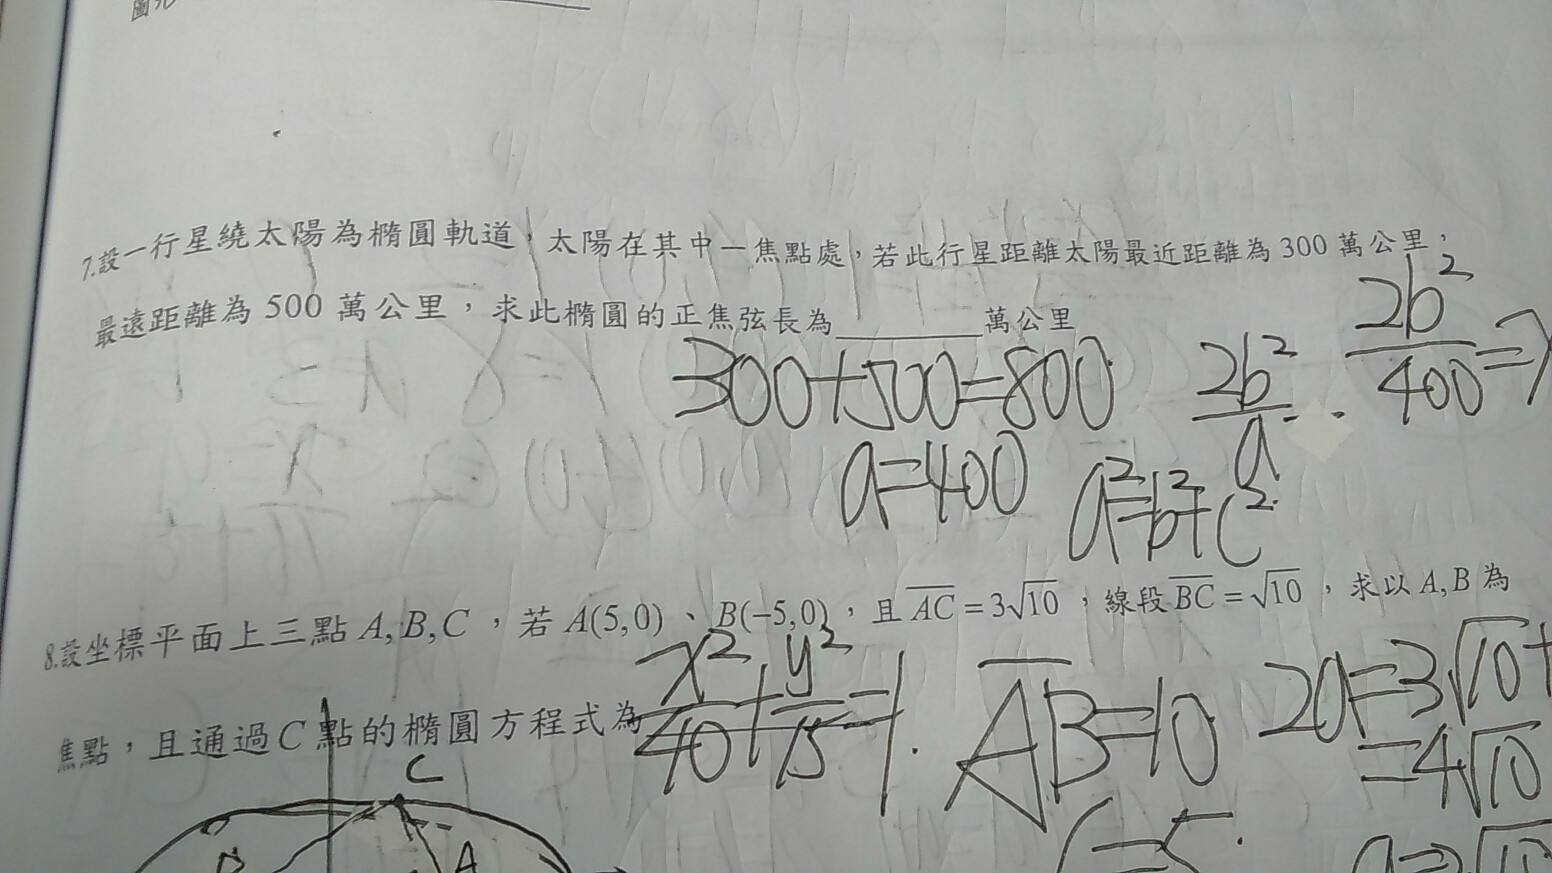 7.設一行星繞太陽為橢圓軌道，太陽在其中一焦點處，若此行星距離太陽最近距離為 300 萬公里，
最遠距離為 500 萬公里，求此橢圓的正焦弦長為________萬公里
300+500=800
a=400
2b²/a=
a²=b²+c²
2b²/400=>
8.設坐標平面上三點 A,B,C ，若 A(5,0) 、 B(−5,0) ，且 \overline{AC} = 3√10 ，線段 \overline{BC} = √10 ，求以 A,B 為
焦點，且通過 C 點的橢圓方程式為 x²/40+y²/15=1.
\overline{AB}=10
2a=3√10+
=4√10
C
B
A